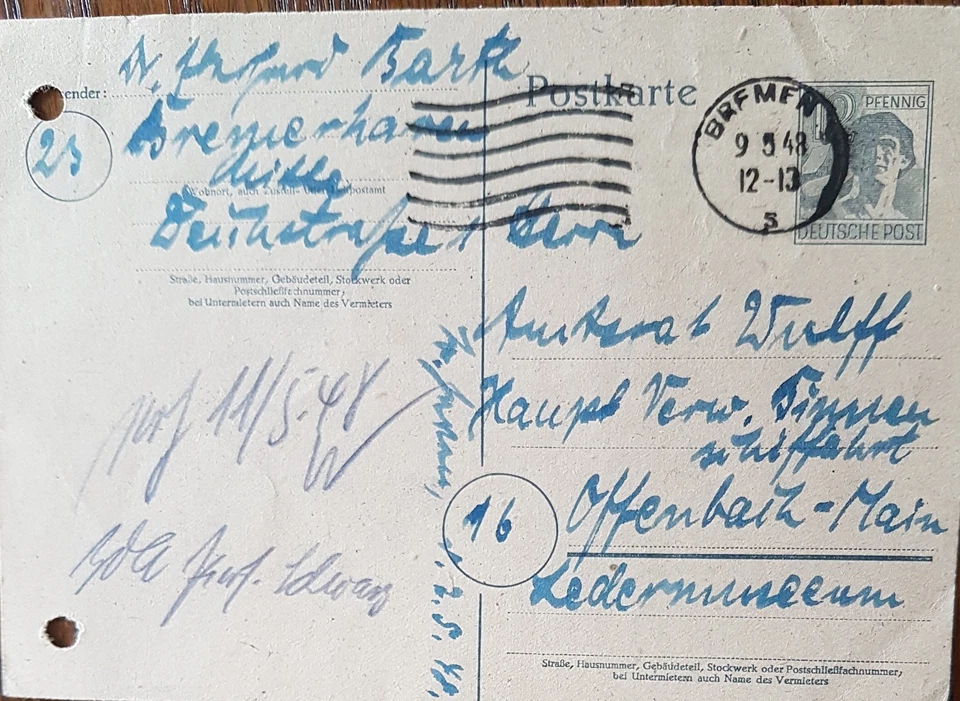 Dr. Barth
Postkarte
ender:
Bremerhaven
23
Mitte
Wohnort, auch Zustell- oder Leitpostamt
Straße, Hausnummer, Gebäudeteil, Stockwerk oder
Postschließfachnummer;
bei Untermietern auch Name des Vermieters
BREMEN
9 5 48
12-13
s
12 PFENNIG
DEUTSCHE POST
Amtsrat Wulff
Haupt Verw. Binnen
schiffahrt
16
Offenbach-Main
Ledermuseeum
Straße, Hausnummer, Gebäudeteil, Stockwerk oder Postschließfachnummer;
bei Untermietern auch Name des Vermieters
11/5.48
W
Schwarz
2.5.48.